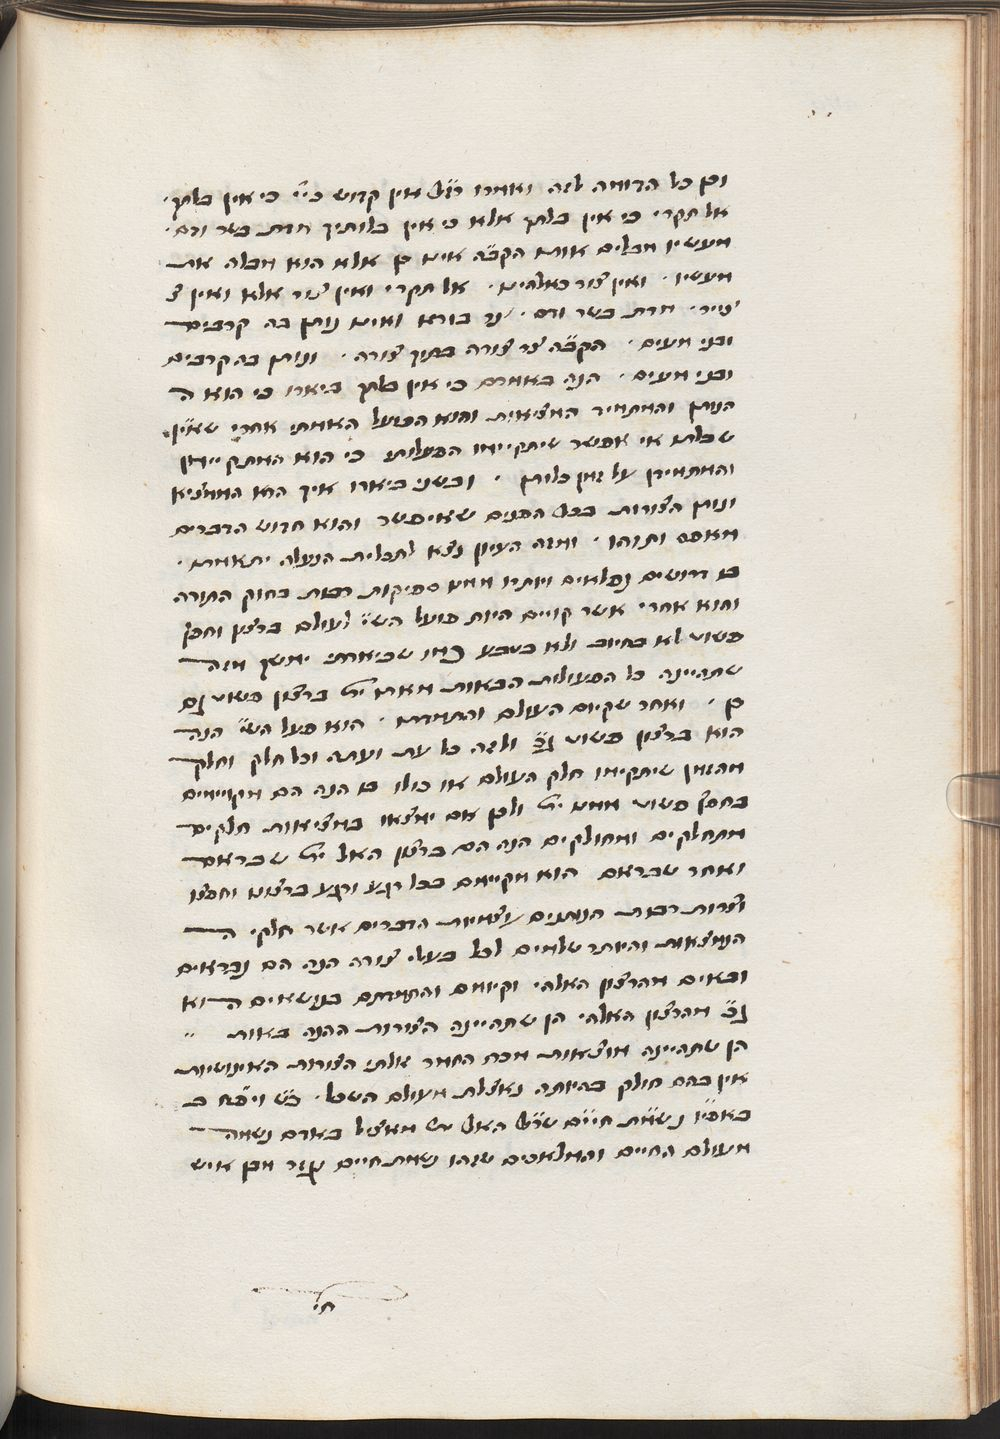 וכן כל הדומה לזה ואמרו רז״ל אין קדוש כיי׳ כי אין בלתך .
אל תקרי כי אין בלתך אלא כי אין בלותיך מדת בשר ודם .
מעשיו מבלים אותו הקב״ה אינו כן אלא הוא מבלה את
מעשיו . ואין צור כאלהינו . אל תקרי ואין צור אלא ואין צ
צייר . מדת בשר ודם . צר צורא ואינו נותן בה קרבים
ובני מעים . הקב״ה צר צורה בתוך צורה . ונותן בה קרבים
ובני מעים . הנה באמרם כי אין בלתך ביארו כי הוא ה
הנותן והמתמיד המציאות והוא הפועל האמתי אחרי שאין
שבלתו אי אפשר שיתקיימו הפעולות כי הוא המתקיימן
והמתמידן על זמן כלותן . ובשני ביארו איך הוא הממציא
ונותן הצורות בכל הפנים שאיפשר והוא חדוש הדברים
מאפס ותוהו . ומזה העיון נצא לתכלית הנעלה יתאמת .
בו דרושים נפלאים ויותרו ממנו ספיקות רבות בחוק התורה
והוא אחרי אשר קויים היות פועל הש״י לעולם ברצון וחפץ
פשוט לא בחיוב ולא בטבע כמו שביארתי ימשך מזה
שתהיינה כל הפעולות הבאות מאתו ית׳ ברצון פשוט גם
כן . ואחר שקיום העולם והתמדתו . הוא פועל הש״י הנה
הוא ברצון פשוט ג״כ ולזה כל עת ועתה וכל חלק וחלק
מהזמן שיתקיימו חלק העולם או כולו בו הנה הם מקויימים
בחפץ פשוט ממנו ית׳ ולכן אם ימצאו במציאות חלקים
מתחלקים ומחולקים הנה הם ברצון האל ית׳ שבראם
ואחר שבראם הוא מקיימם בכל רגע ורגע ברצונו וחפצו
וצורות רבות הנותנים עצמיות הדברים אשר חלקי ה
הנמצאות והיותר שלמים לכל בעלי צורה הנה הם נבראים
ובאים מהרצון האלהי וקיומם והתמדתם בנושאים הוא
ג״כ מהרצון האלהי הן שתהיינה הצורות ההנה באות
הן שתהיינה מוצאות מכח החמר אולתי הצורות האינושיות
אין בהם חולק בהיותה נאצלת מעולם השכל . כ״ש ויפח ב
באפיו נשמת חיים שר״ל האל ית׳ האציל באדם נשמה
מעולם החיים והמלאכים שזהו נשמת חיים עזר מבן איש
חי